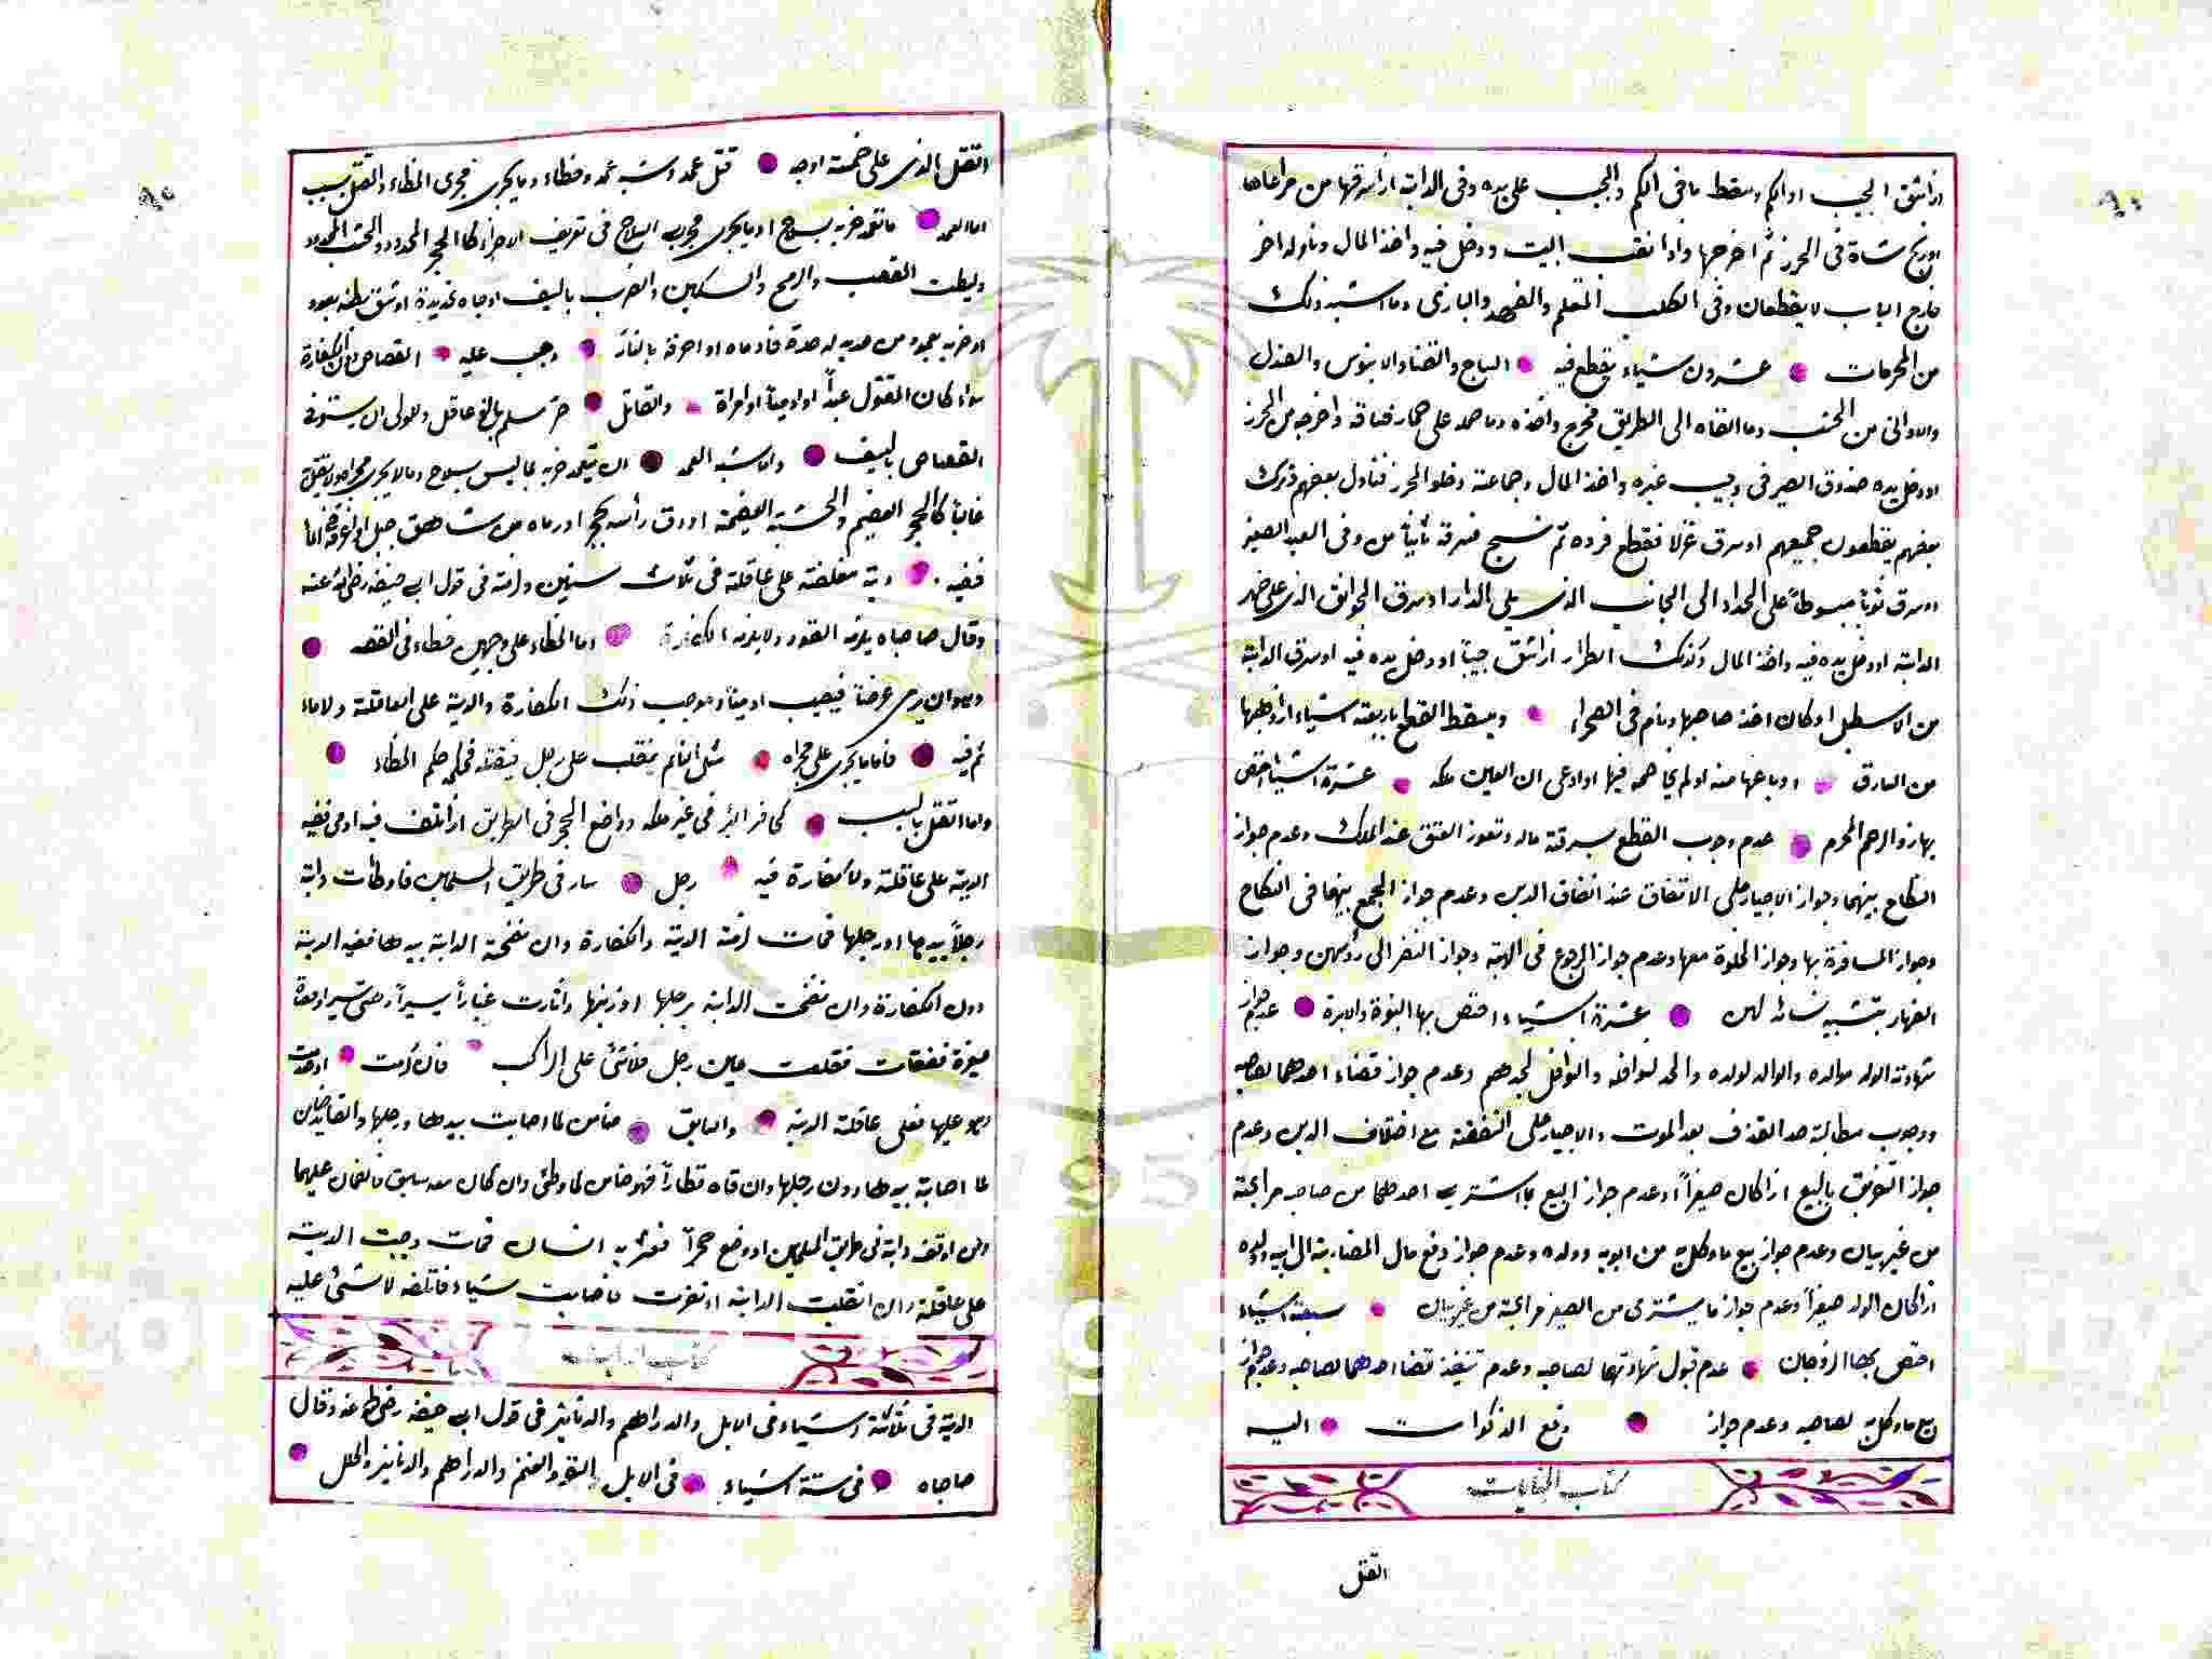 اذا شق الجيب او الكم وسقط ما فى الكم والجيب على يده وفى الدابة اذا سرقها من مراعاها
او ذبح شاة فى الحرز ثم اخرجها واذا نقب البيت ودخل فيه واخذ المال وناوله اخر
خارج الباب لا يقطعان وفى الكلب المعلم والفهد والبازى وما اشبه ذلك
من المحرمات عشرون شياء يقطع فيه الساج والقنا والابنوس والصندل
والاوانى من الخشب وما القاه الى الطريق فخرج واخذه وما حمله على حمار فساقه واخرجه من الحرز
او دخل يده صندوق الصيرفى وجيب غيره واخذ المال وجماعة دخلو الحرز فتناول بعضهم دون
بعضهم يقطعون جميعهم او سرق غزلا فقطع فرده ثم نسج فسرقه ثانيا وفى العبد الصغير
او سرق ثوبا مبسوطا على الجدار الى الجانب الذى يلى الدار او سرق الجوالق الذى على ظهر
الدابة او دخل يده فيه واخذ المال وكذلك الطرار اذا شق جيبا او دخل يده فيه او سرق الدابة
من الاسطبل او كان اخذ صاحبها ونام فى الصحراء ويسقط القطع باربعة اشياء اذا وهبها
من السارق او باعها منه او لم يخاصمه فيها او ادعى ان العين ملكه عشرة اشياء اختص
بها ذو الرحم المحرم عدم وجوب القطع بسرقة ماله ونفوذ العتق عند الملك وعدم جواز
النكاح بينهما وجواز الاجبار على الانفاق عند اتفاق الدين وعدم جواز الجمع بينهما فى النكاح
وجواز المسافرة بها وجواز الخلوة معها وعدم جواز الرجوع فى الهبة وجواز النظر الى رؤسهن وجواز
الظهار بتشبيه نسائه لهن عشرة اشياء اختص بها البنوة والابوة عدم جواز
شهادة الولد لوالده والوالد لولده والجد لنوافله والنوافل لجدهم وعدم جواز قضاء احدهما لصاحبه
ووجوب مطالبة حد القذف بعد الموت والاجبار على النفقة مع اختلاف الدين وعدم
جواز التفريق بالبيع اذا كان صغيراً وعدم جواز البيع بما اشترى احدهما من صاحبه مرابحة
من غير بيان وعدم جواز بيع ما وكل به من ابويه وولده وعدم جواز دفع مال المضاربة الى ابيه وولده
اذا كان الولد صغيراً وعدم جواز ما يشترى من الصغير مرابحة من غير بيان سبعة اشياء
اختص بها الزوجان عدم قبول شهادتهما لصاحبه وعدم تنفيذ قضا احدهما لصاحبه وعدم جواز
بيع ما وكل به لصاحبه وعدم جواز دفع الذكوات اليه
كتاب الجنايات
القتل
القتل الذى على خمسة اوجه قتل عمد وشبه عمد وخطاء وما يجرى مجرى الخطاء والقتل بسبب
اما العمد ما تعمد ضربه بسلاح او ما يجرى مجرى السلاح فى تفريق الاجزاء كما الحجر المحدود والخشب المحدود
وليطت القصب والرمح والسكين والضرب بالسيف او جاه بحديدة او شق بطنه بعود
او ضربه بعمود من حديد له حدة فادماه او احرقه بالنار وجب عليه القصاص دون الكفارة
سواء كان المقتول عبداً او ذمياً او امراة والقاتل حر مسلم بالغ عاقل وللولى ان يستوفى
القصاص بالسيف واما شبه العمد ان يتعمد ضربه بما ليس بسلاح وما لا يجرى مجراه ولا يقتل
غالبا كالحجر العضيم والخشبة العضيمة او دق رأسه بحجر او رماه من شاهق جبل او غرقه فى الماء
ففيه دية مغلضة على عاقلة فى ثلاث سنين ولزمة فى قول ابى حنيفه رضى الله عنه
وقال صاحباه يلزمه القود ولا يلزمه الكفارة وما الخطاء على وجهين خطاء فى القصد
وهو ان يرمى غرضاً فيصيب ادمياً وموجب ذلك الكفارة والدية على العاقلة ولا ماء
ثم فيه فاما ما يجرى على مجراه مثل النائم ينقلب على رجل فيقتله فحكمه حكم الخطاء
واما القتل بالسبب كحافر البئر فى غير ملكه وواضع الحجر فى الطريق اذا تلف فيه ادمى ففيه
الدية على عاقلة ولا كفارة فيه رجل سار فى طريق المسلمين فاوطات دابة
رجلاً بيدها او رجلها فمات لزمة الدية والكفارة وان نفحة الدابة بيدها ففيه الدية
دون الكفارة وان نفخت الدابة برجلها او ذنبها واثارت غباراً يسيراً او حصى يسير او حصاة
صغيرة ففقات فقلعت عين رجل فلا شئ على الراكب فان كدمت او صدمت
وهو عليها فعلى عاقلة الدية والسايق ضامن لما اصابت بيدها ورجلها والقايد ضامن
لما اصابة بيدها دون رجلها وان قاد قطاراً فهو ضامن لما وطئ وان كان معه سايق فالضمان عليهما
ومن اوقف دابة فى طريق المسلمين او وضع حجراً فعثر به انسان فمات وجبت الدية
على عاقلة وان انفلبت الدابة او نفرت فاصابت شياء فاتلفه لا شئ عليه
كتاب الديات
الدية فى ثلاثة اشياء فى الابل والدراهم والدنانير فى قول ابى حنيفه رضى الله عنه وقال
صاحباه فى ستة اشياء فى الابل والبقر والغنم والدراهم والدنانير والحلل